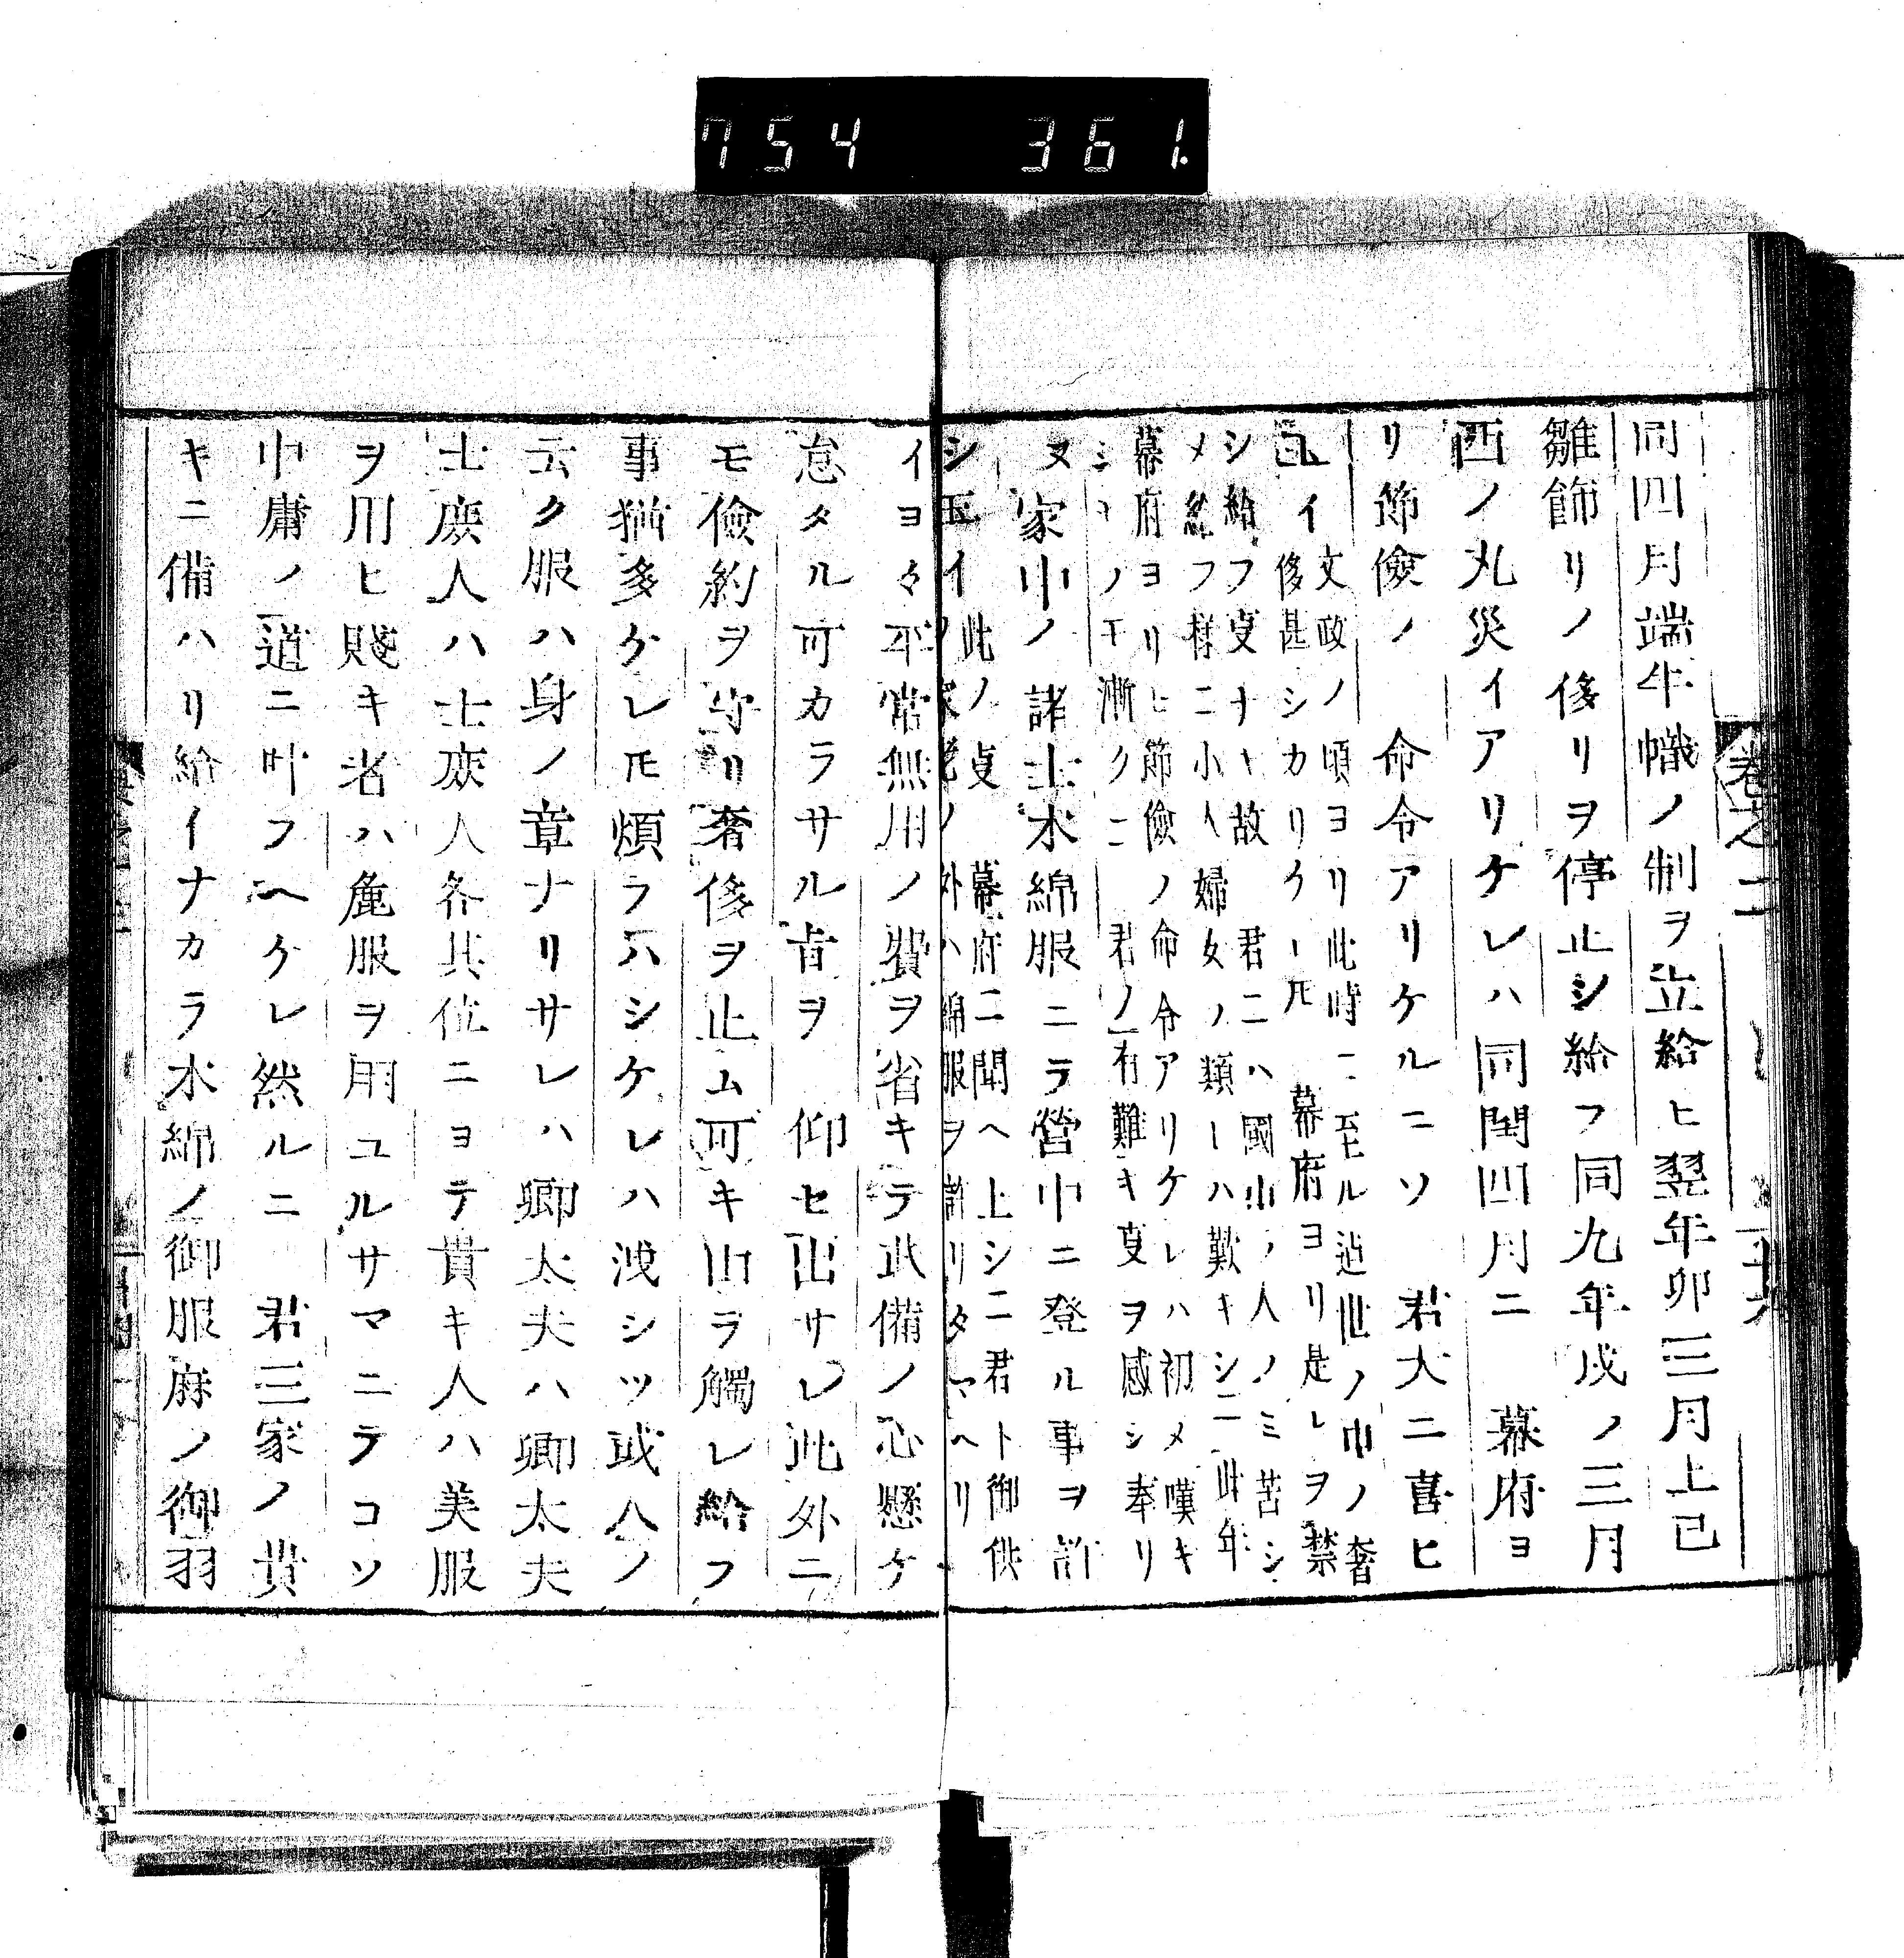 754 361.
卷之二
同四月端午幟ノ制ヲ立給ヒ翌年卯三月上巳
雛飾リノ侈リヲ停止シ給フ同九年戌ノ三月
西ノ丸災イアリケレハ同閏四月ニ 幕府ヨ
リ節儉ノ 命令アリケルニソ 君大ニ喜ヒ
玉イ
文政ノ頃ヨリ此時ニ至ル迠世ノ巾ノ奢
侈甚シカリケレ𪜈 幕府ヨリ是レヲ禁
シ給フ叓ナキ故 君ニハ國中ノ人ノミ苦シ
メ給フ樣ニ小人婦女ノ類ーハ歎キシニ此年
幕府ヨリヒ節儉ノ命令アリケレハ初メ嘆キ
シモノモ漸クニ 君ノ有難キ叓ヲ感シ奉リ
ヌ家中ノ諸士木綿服ニテ營中ニ登ル事ヲ許
シ玉イ
此ノ叓 幕府ニ聞ヘ上シニ君ト御供
ノ家老ノ外ハ綿服ヲ許リタマヘリ
イヨ々平常無用ノ費ヲ省キテ武備ノ心懸ケ
怠タル可カラサル旨ヲ 仰セ出サレ此外ニ
モ儉約ヲ守リ奢侈ヲ止ム可キ由ラ觸レ給フ
事猶多ケレ𪜈煩ラハシケレハ洩シツ或人ノ
云ク服ハ身ノ章ナリサレハ卿太夫ハ卿太夫
士庻人ハ士庻人各其位ニヨテ貴キ人ハ美服
ヲ用ヒ賤キ者ハ麁服ヲ用ユルサマニテコソ
中庸ノ道ニ叶フヘケレ然ルニ 君三家ノ貴
キニ備ハリ給イナカラ木綿ノ御服麻ノ御羽